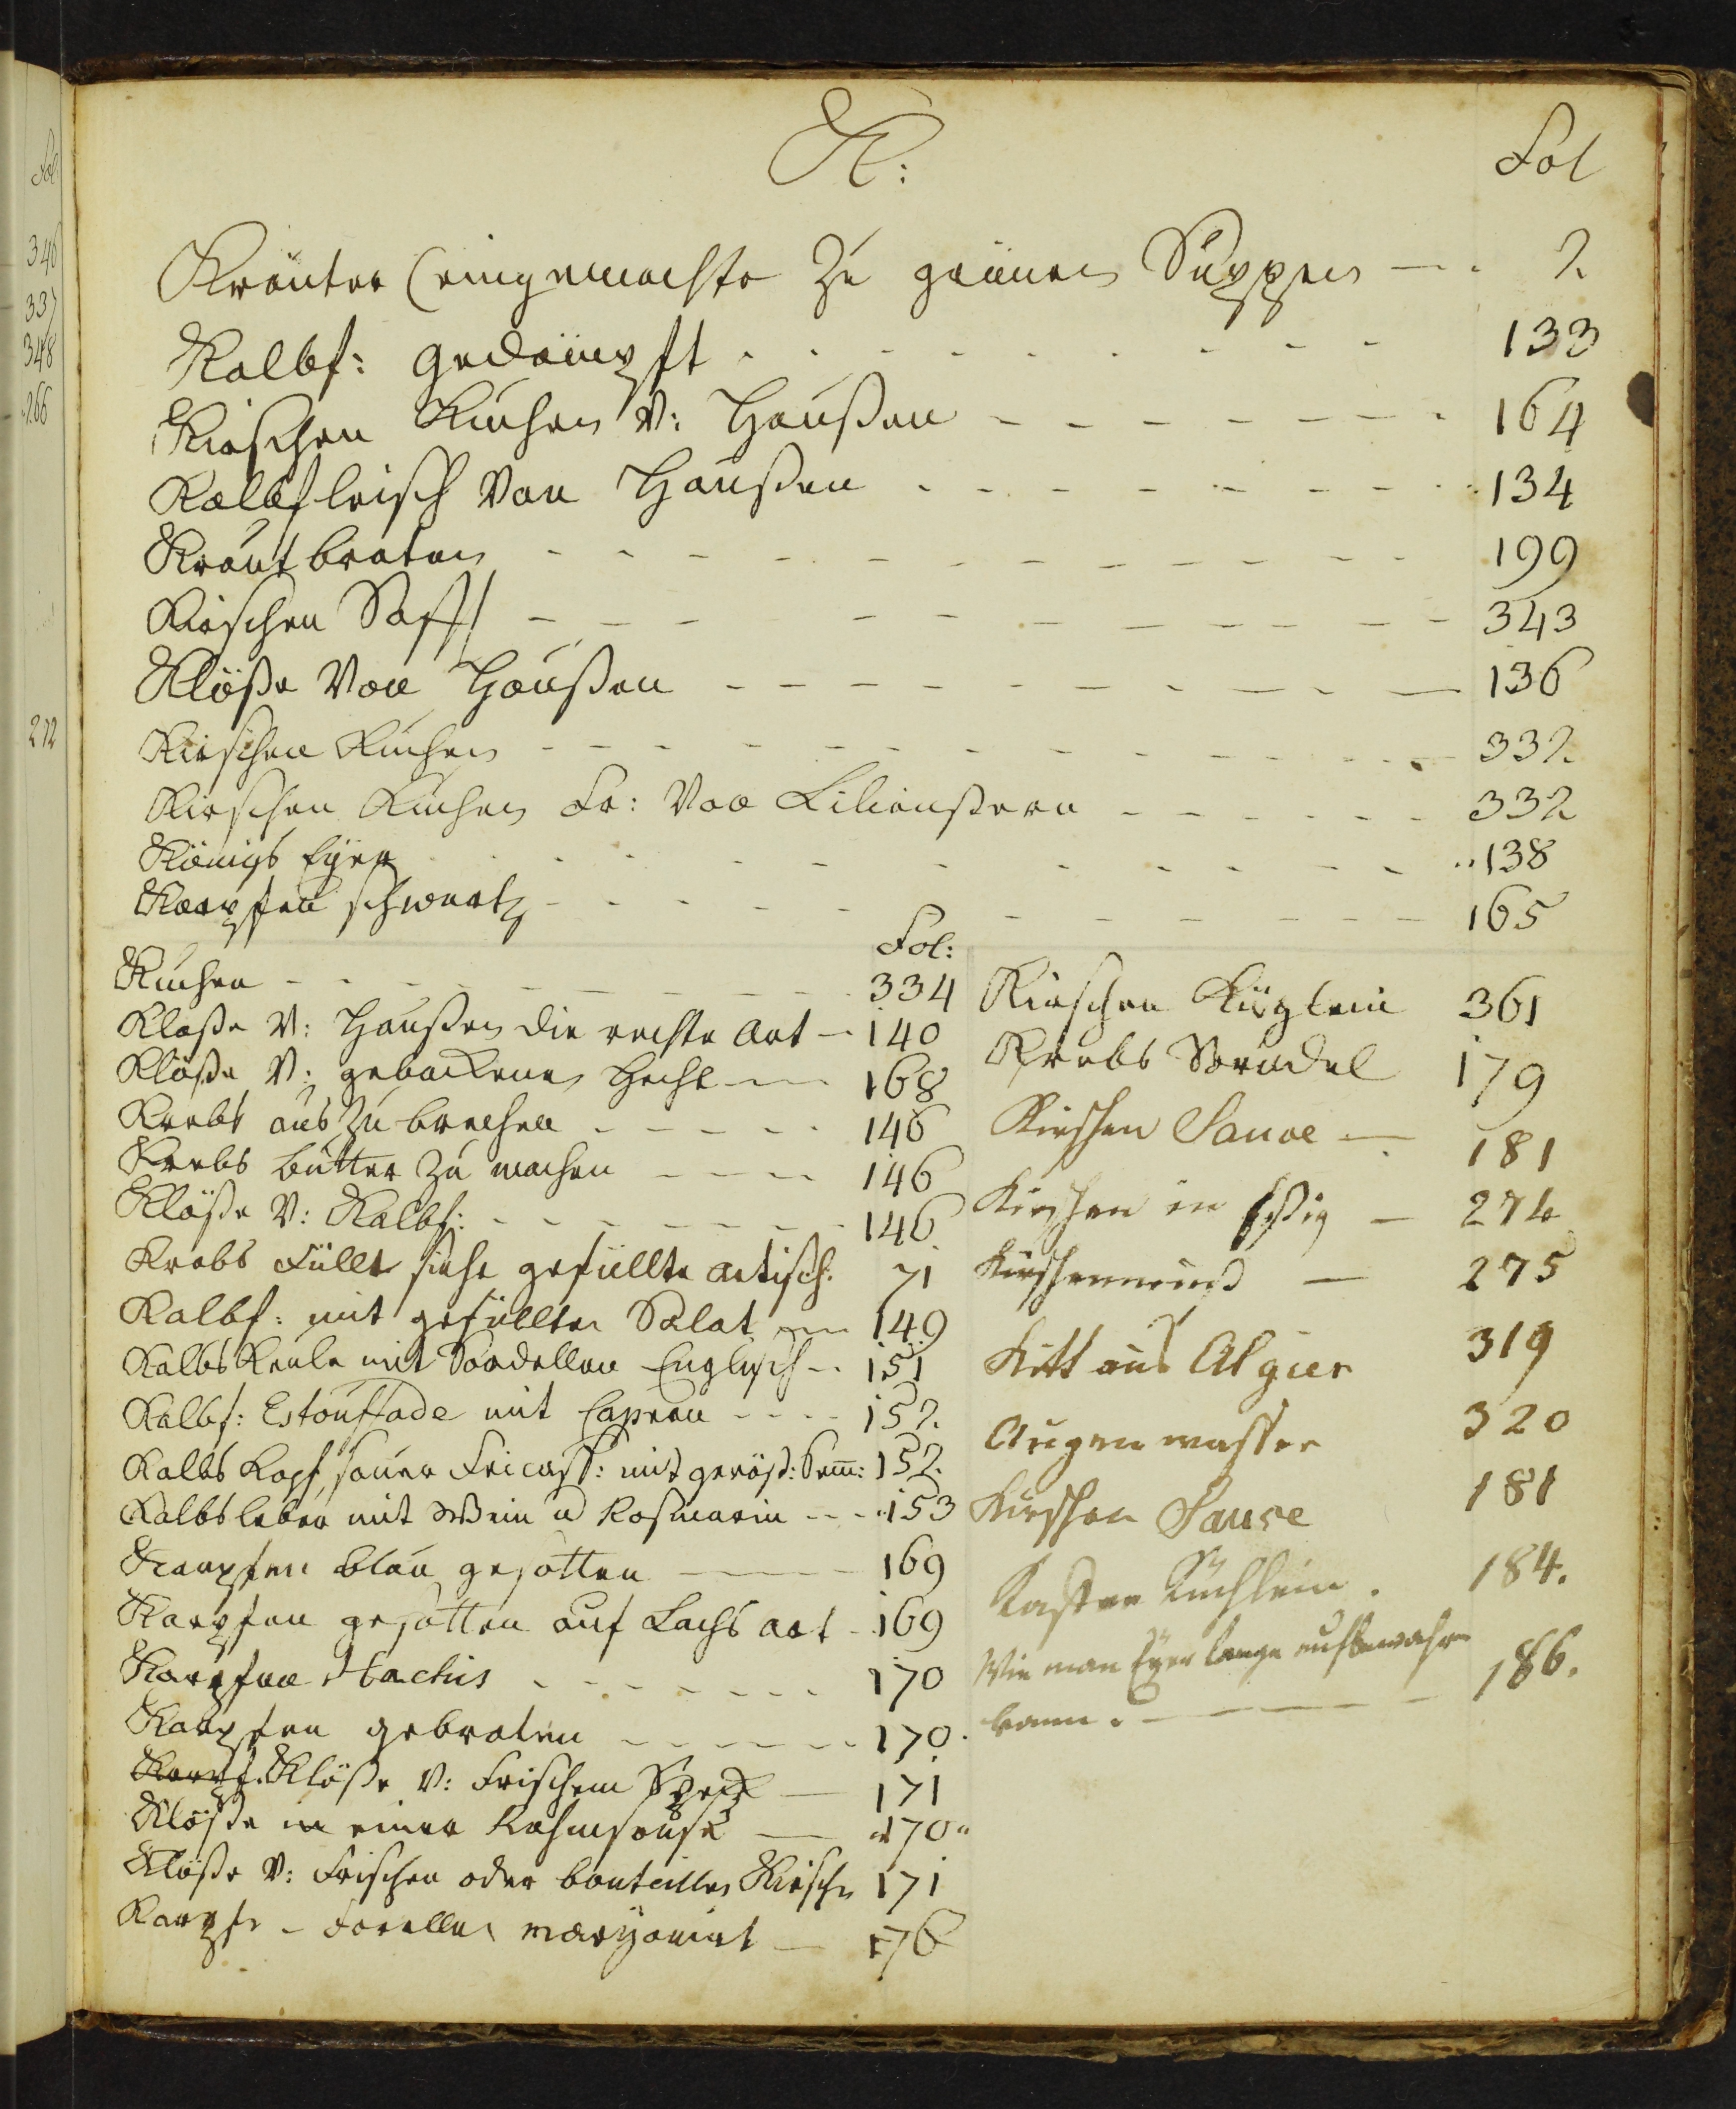 K: Fol
Kräuter (eingemachte zu grünen Suppen — . 2.
Kalbf: gedämpft . . - - - - - - - - 133
Kirschen Kuchen V: Haußen - - - - - - - . 164
Kalbfleisch Von Haußen . - - - - - - - . . 134
Kraut braten - - - - - - - - - - - - 199
Kirschen Safft - - - - - - - - - - - 343
Klöße Von Haußen - - - - - - - - - - — 136
Kirschen Kuchen - - - - - - - - - - - - 332.
Kirschen Kuchen Fr: Von Lilienstern - - - - - - 332
Königs Eyer - - - - - - - - - - - . . 138
Karpfen schwartz - - - - - - - - - - - 165
Fol:
Kuchen - - - - - - - - - 334
Klöße V: Haußen die rechte Art — 140
Klöße V: gebackenen Hecht — 168
Krebs aus zu brechen - - - - - 146
Krebs butter zu machen - - - - 146
Klöße V: Kalbf: - - - - - - - - 146
Krebs Füllt siehe gefüllte artisch: 71
Kalbf: mit gefüllten Salat — 149
Kalbs Keule mit Sardellen Englisch - . 151
Kalbf: Estouffade mit Capern - - - - 152.
Kalbs Kopf, sauer Fricass: mit geröst: Sem: 152.
Kalbsleber mit Wein u Rosmarin - - - 153
Karpfen blau gesotten — 169
Karpfen gesotten auf Lachs art - 169
Karpfen Hachis - - - - - - - 170
Karpfen gebraten - - - - - - 170.
Karpf. Klöße V: Frischem Speck — 171
Klöße in einer Rahmsause — "170"
Klöße V: Frischen oder bouteillen Kirschn 171
Karpfe - Forellen maryonirt — 176
Kirschen Küglein 361
Krebs Strudel 179
Kirschen Sauce — 181
Kirschen in Essig — 274
Kirschenmus — 275
Kitt aus Algier 319
Augen wasser 320
Kirschen Sauce 181
Kaster Küchlein . 184.
Wie man Eyer lange aufbewahren
kann. — — — 186.
Fol
346
337
348
266
272